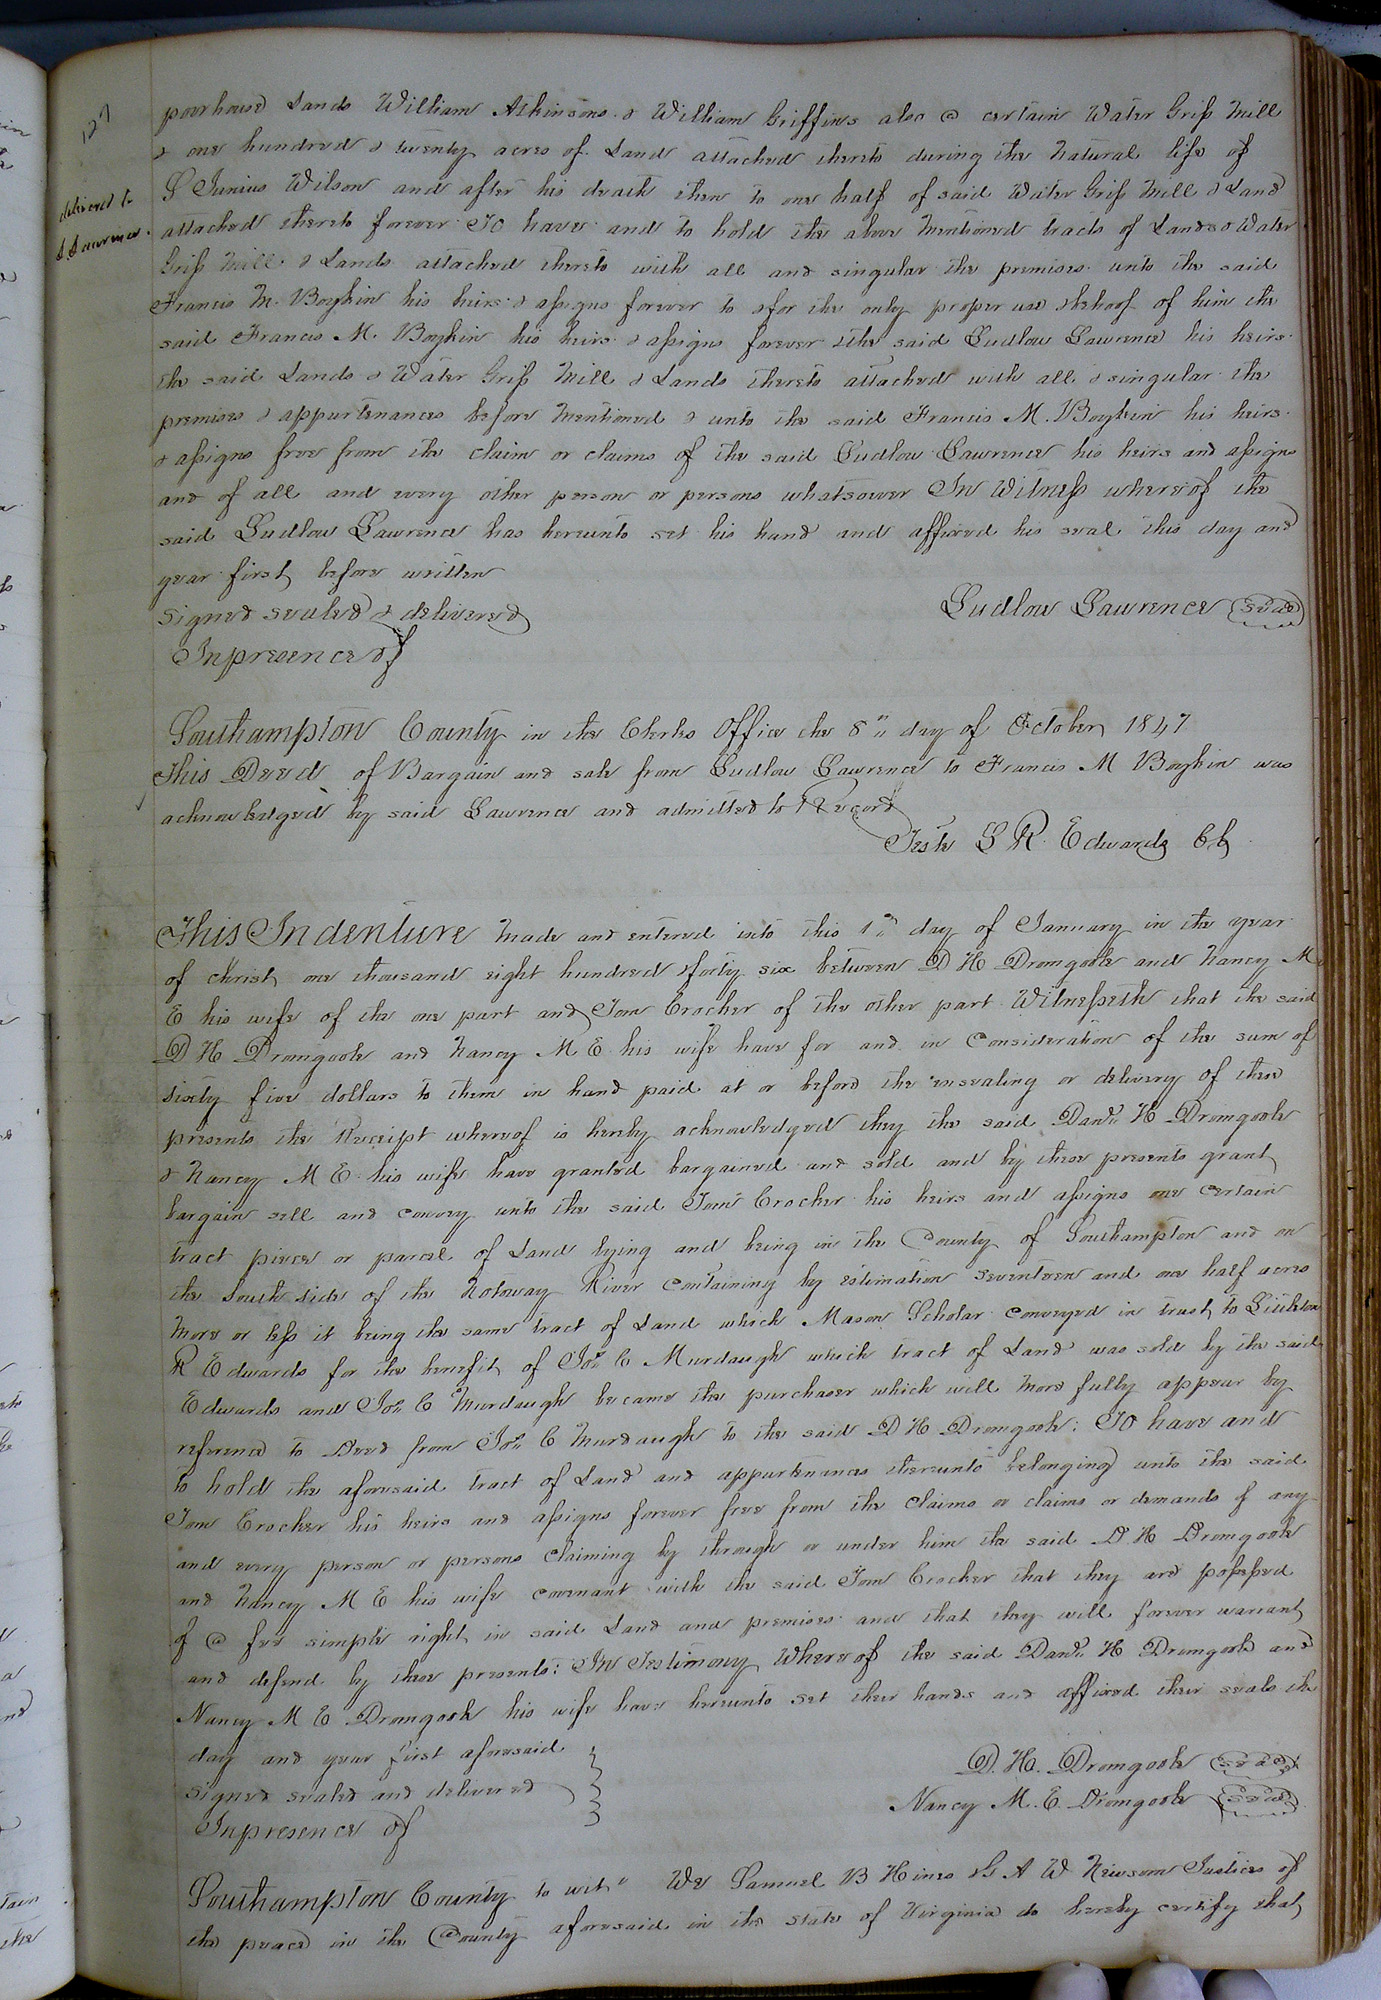 127
delivered to
L Lawrence.
poorhouse Lands William Atkinsons & William Griffins also a certain Water Grist Mill
& one hundred & twenty acres of Land attached thereto during the Natural life of
L Junius Wilson and after his death then to one half of said Water Grist Mill & Land
attached thereto forever To have and to hold the above mentioned tracts of Lands & Water
Grist Mill & Lands attached thereto with all and singular the premises unto the said
Francis M. Boykin his heirs & assigns forever to & for the only proper use & behoof of him the
said Francis M. Boykin his heirs & assigns forever & the said Ludlow Lawrence his heirs
the said Lands & Water Grist Mill & Lands thereto attached with all & singular the
premises & appurtenances before mentioned & unto the said Francis M. Boykin his heirs
& assigns free from the claim or claims of the said Ludlow Lawrence his heirs and assigns
and of all and every other person or persons whatsoever In Witness whereof the
said Ludlow Lawrence has hereunto set his hand and affixed his seal this day and
year first before written
Signed sealed & delivered
Ludlow Lawrence (Seal)
In presence of
Southampton County in the Clerks Office the 8th day of October 1847
This Deed of Bargain and sale from Ludlow Lawrence to Francis M Boykin was
acknowledged by said Lawrence and admitted to Record
Teste L R. Edwards Ck
This Indenture made and entered into this 1st day of January in the year
of christ one thousand eight hundred & forty six between D H Dromgoole and Nancy M
E his wife of the one part and Tom Crocker of the other part Witnesseth that the said
D H Dromgoole and Nancy M E his wife have for and in Consideration of the sum of
sixty five dollars to them in hand paid at or before the ensealing or delivery of these
presents the Receipt whereof is hereby acknowledged they the said Danl. H Dromgoole
& Nancy M E his wife have granted bargained and sold and by these presents grant
bargain sell and convey unto the said Tom Crocker his heirs and assigns one certain
tract piece or parcel of Land lying and being in the County of Southampton and on
the South Side of the Notoway River Containing by estimation seventeen and one half acres
more or less it being the same tract of Land which Mason Scholar conveyed in trust to Littleton
R Edwards for the benefit of Jos. C Murdaugh which tract of Land was sold by the said
Edwards and Jos. C Murdaugh became the purchaser which will more fully appear by
reference to Deed from Jos. C Murdaugh to the said D H Dromgoole: To have and
to hold the aforesaid tract of Land and appurtenances thereunto belonging unto the said
Tom Crocker his heirs and assigns forever free from the claims or claims or demands of any
and every person or persons claiming by through or under him the said D H Dromgoole
and Nancy M E his wife covenant with the said Tom Crocker that they are possessed
of a fee simple right in said Land and premises and that they will forever warrant
and defend by these presents: In Testimony Whereof the said Danl. H Dromgoole and
Nancy M E Dromgoole his wife have hereunto set their hands and affixed their seals the
day and year first aforesaid
D. H. Dromgoole (Seal)
signed sealed and delivered
Nancy M. E. Dromgoole (Seal)
In presence of
Southampton County to wit" We Samuel B Hines & G A W Newsom Justices of
the peace in the County aforesaid in the state of Virginia do hereby certify that